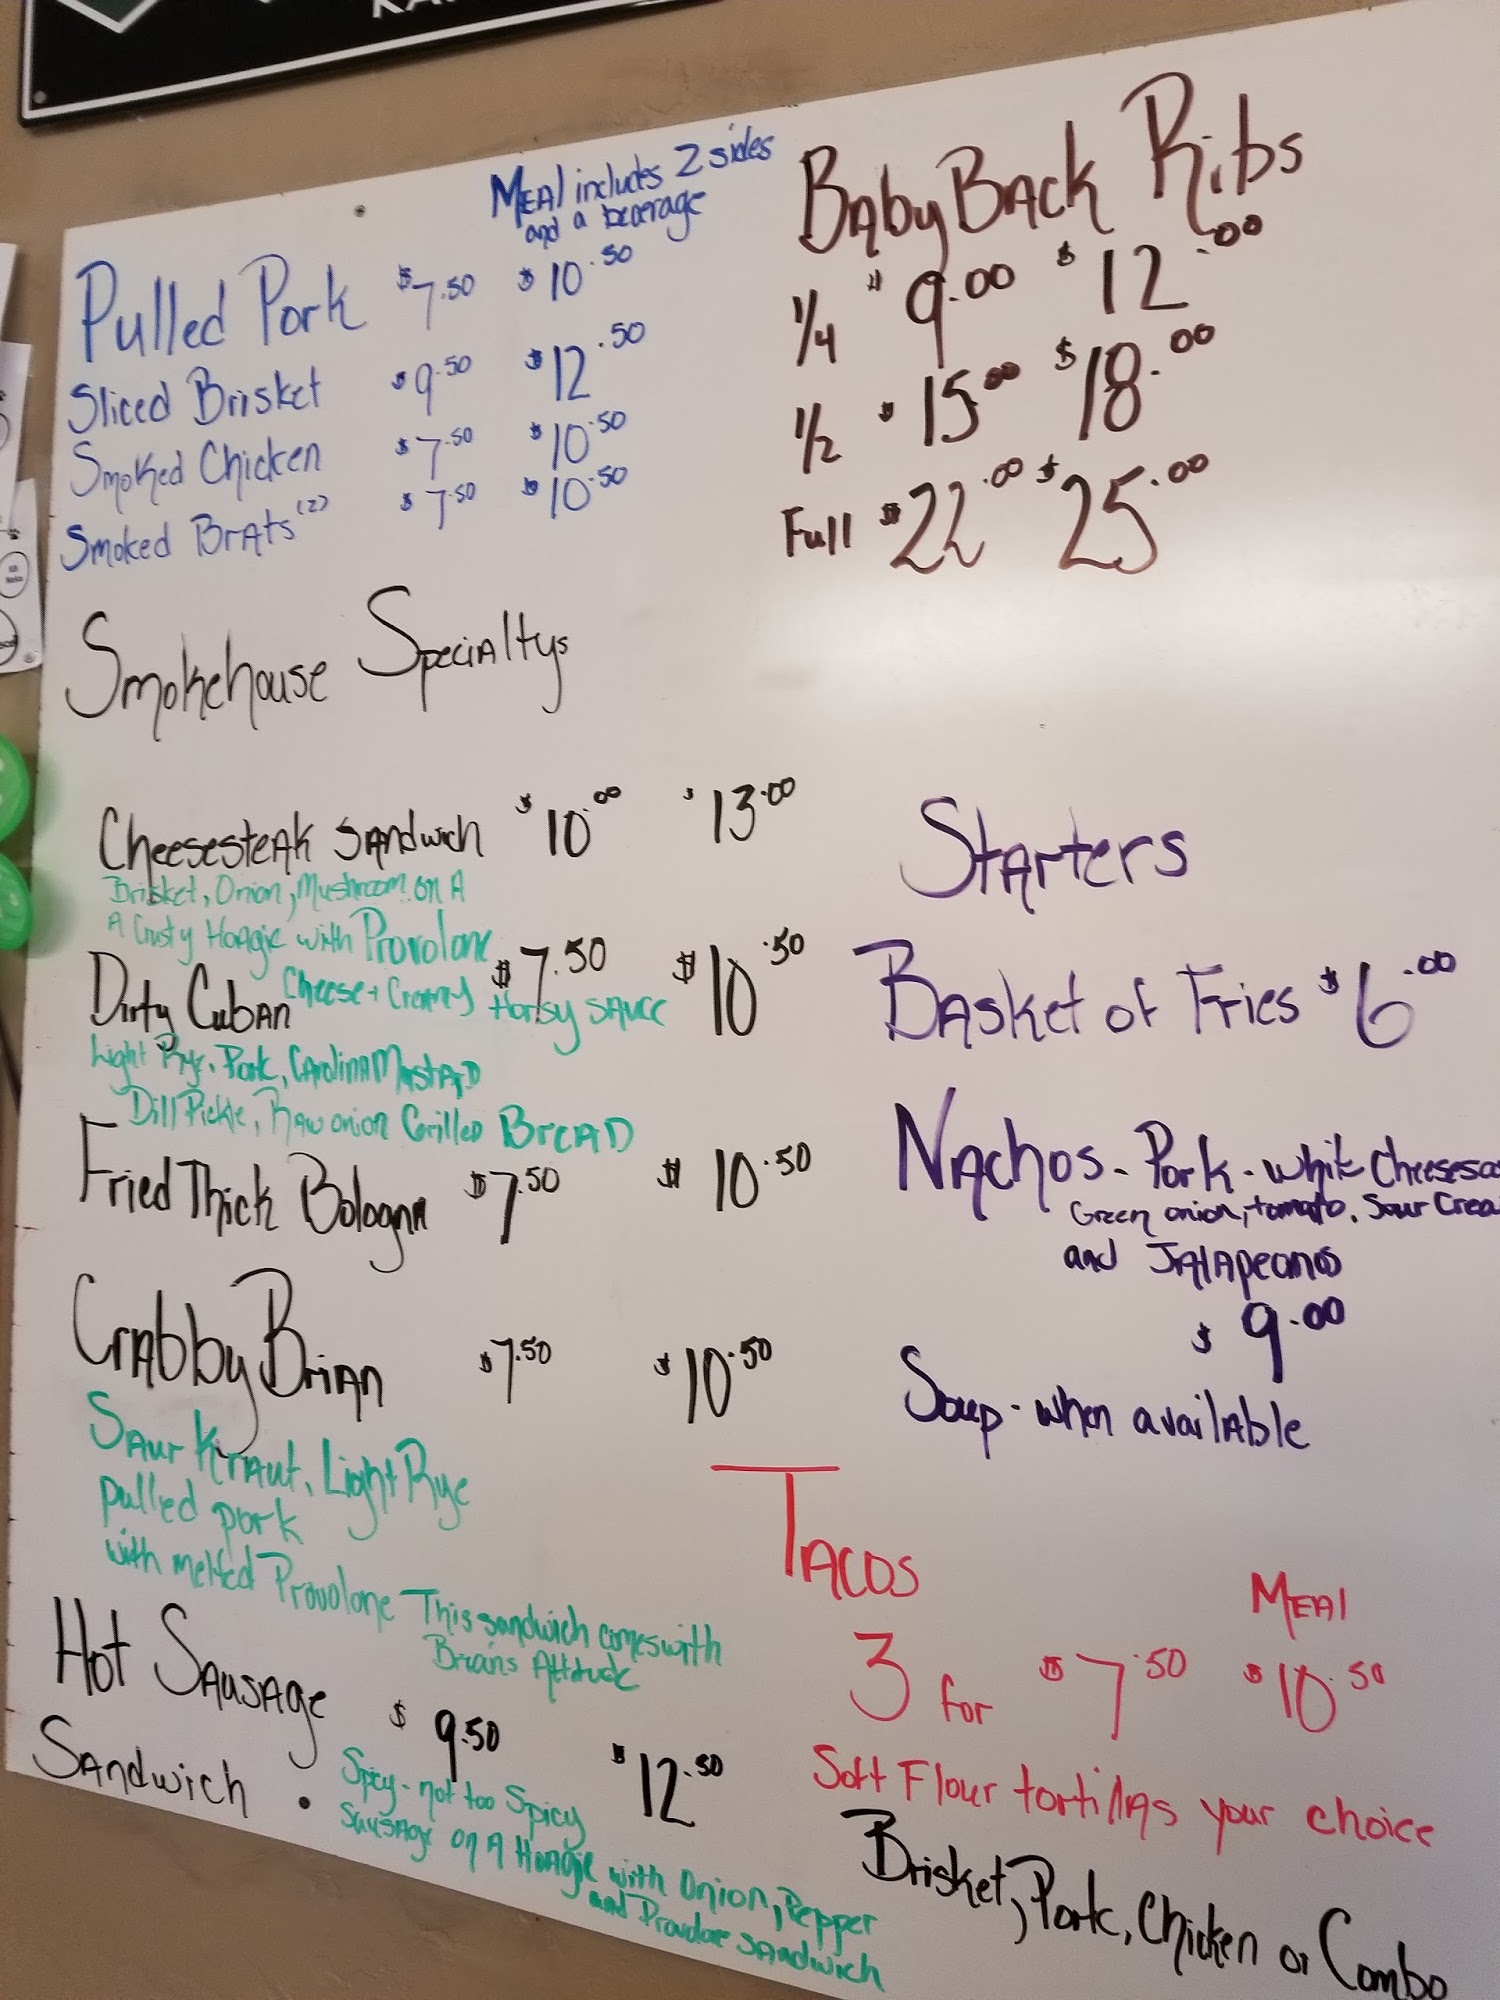 Meal includes 2 sides
and a beverage
Pulled Pork $7.50 $10.50
Sliced Brisket $9.50 $12.50
Smoked Chicken $7.50 $10.50
Smoked Brats (2) $7.50 $10.50
Baby Back Ribs
1/4 $9.00 $12.00
1/2 $15.00 $18.00
Full $22.00 $25.00
Smokehouse Specialtys
Cheesesteak Sandwich $10.00 $13.00
Brisket, Onion, Mushroom on A
A Crusty Hoagie with Provolone
Cheese + Creamy Horsy Sauce
Dirty Cuban $7.50 $10.50
Light Rye, Pork, Carolina Mustard
Dill Pickle, Raw onion Grilled Bread
Fried Thick Bologna $7.50 $10.50
Crabby Brian $7.50 $10.50
Saur Kraut, Light Rye
pulled pork
with melted Provolone This sandwich comes with
Brian's Attitude
Hot Sausage
Sandwich $9.50 $12.50
Spicy - not too Spicy
Sausage on A Hoagie with Onion, Pepper
and Provolone sandwich
Starters
Basket of Fries $6.00
Nachos - Pork - white Cheesesa
Green onion, tomato, Sour Crea
and Jalapeonos
$9.00
Soup - when available
Tacos
Meal
3 for $7.50 $10.50
Soft Flour tortillas your choice
Brisket, Pork, Chicken or Combo